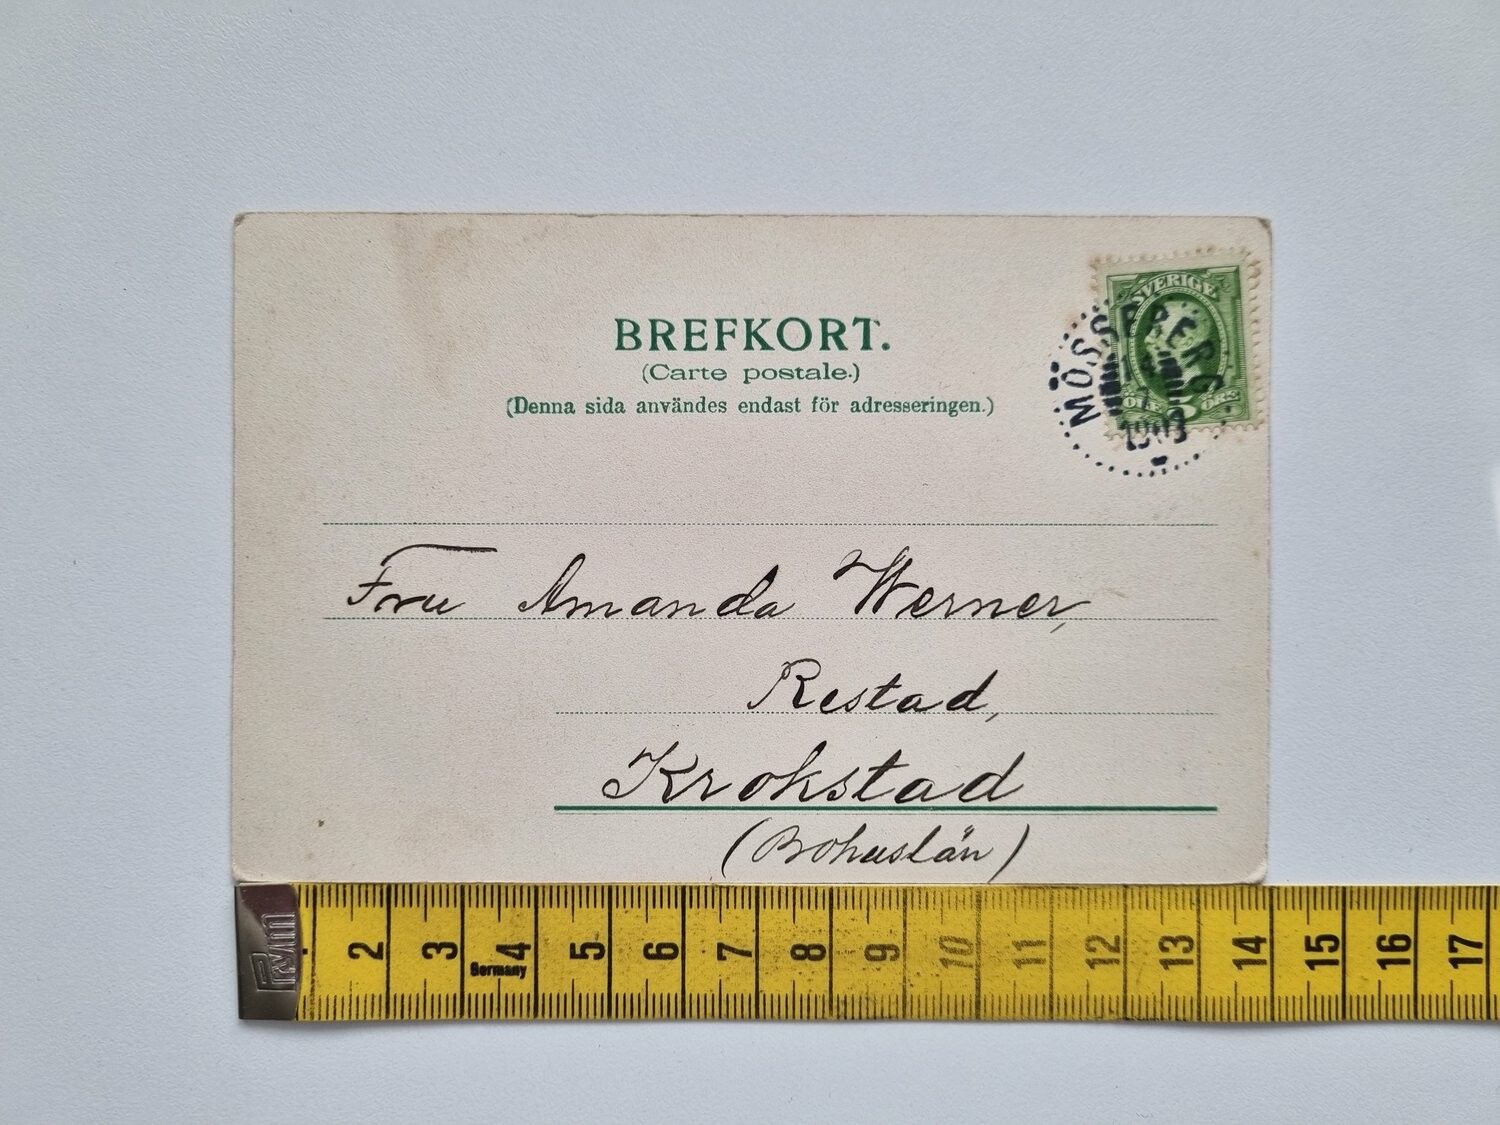 BREFKORT.
(Carte postale.)
(Denna sida användes endast för adresseringen.)
SVERIGE
MÖSSEBERG
1903
ÖRE
Fru Amanda Werner,
Restad,
Krokstad
(Bohuslän)
Prym
2 3 4 5 6 7 8 9 10 11 12 13 14 15 16 17
Germany